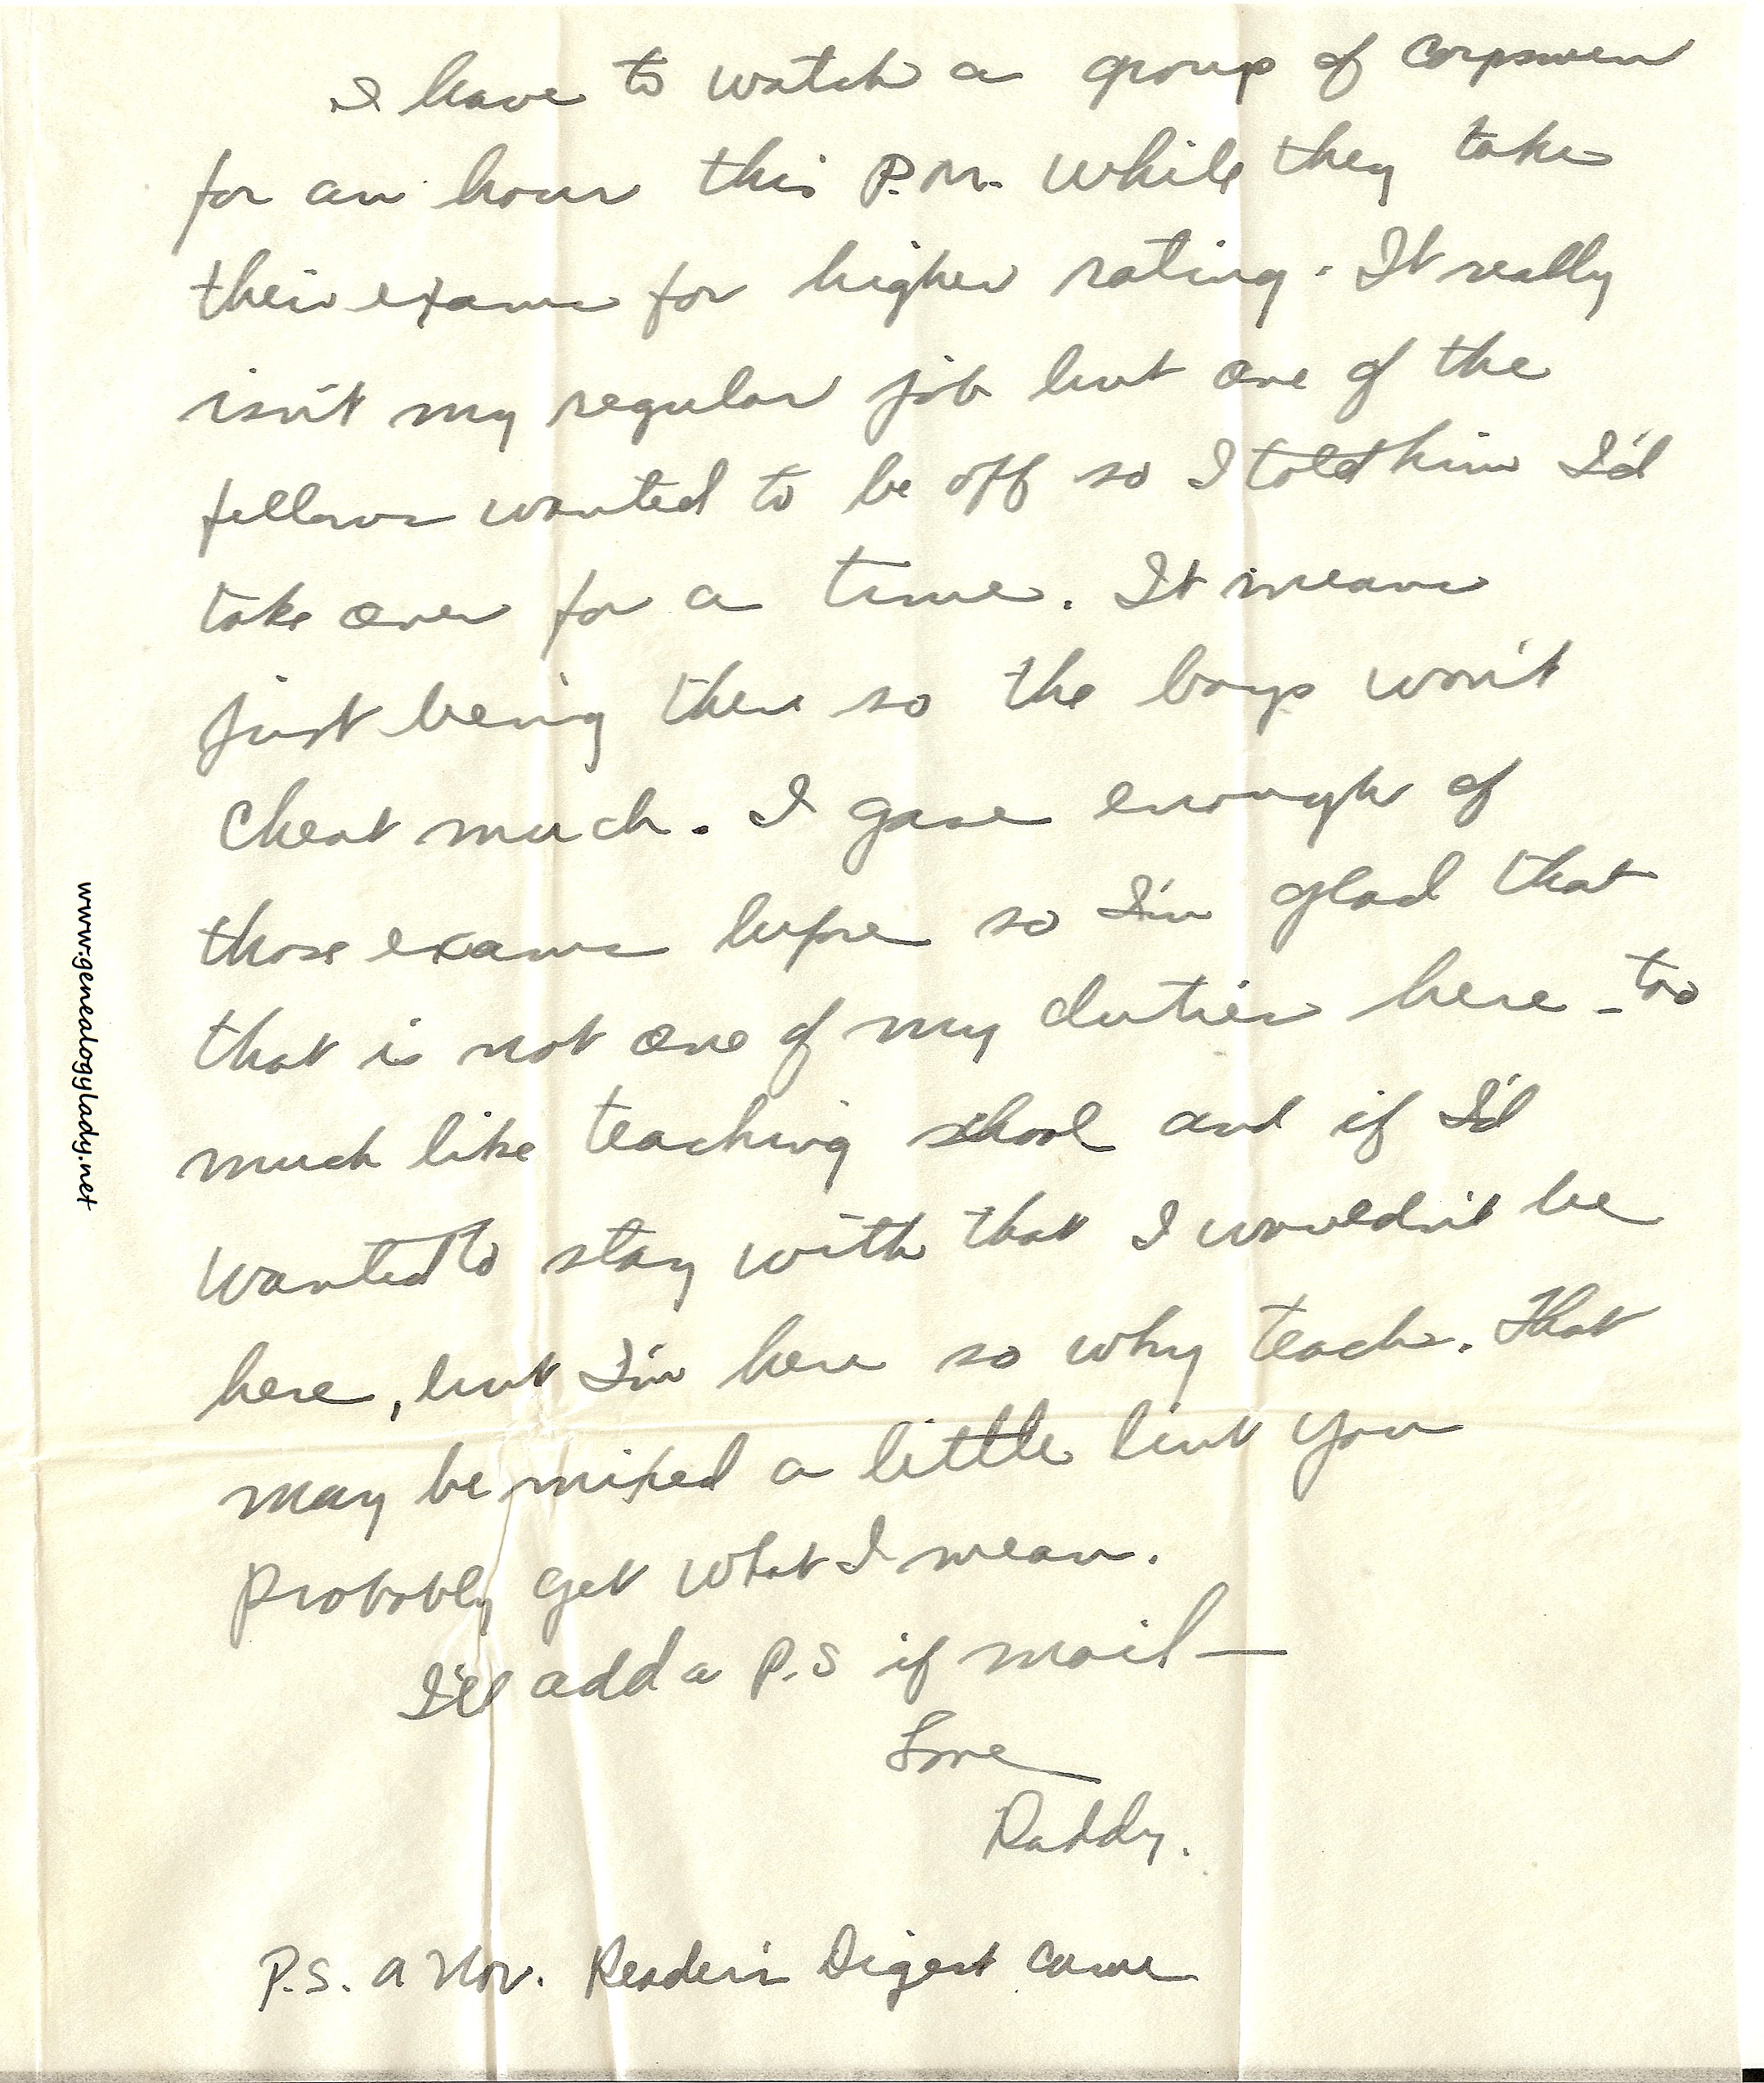 I have to watch a group of corpsmen
for an hour this P.M. while they take
their exams for higher rating. It really
isn't my regular job but one of the
fellows wanted to be off so I told him I'd
take over for a time. It means
just being there so the boys won't
cheat much. I gave enough of
those exams before so I'm glad that
that is not one of my duties here - too
much like teaching school and if I'd
wanted to stay with that I wouldn't be
here, but I'm here so why teach. That
may be mixed a little but you
probably get what I mean.
I'll add a P.S if mail —
Love
Daddy.
P.S. A Nov. Reader's Digest came
www.genealogylady.net